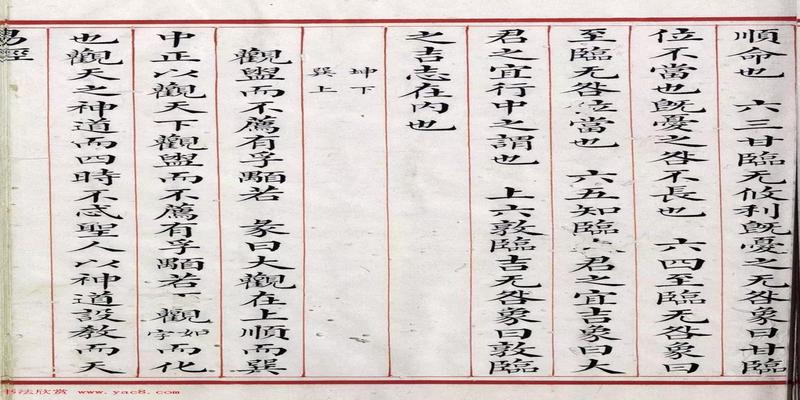 順命也　六三甘臨无攸利既憂之无咎象曰甘臨
位不當也既憂之咎不長也　六四至臨无咎象曰
至臨无咎位當也　六五知臨大君之宜吉象曰大
君之宜行中之謂也　上六敦臨吉无咎象曰敦臨
之吉志在内也
坤下
巽上
觀盥而不薦有孚顒若　彖曰大觀在上順而巽
中正以觀天下觀盥而不薦有孚顒若　觀如字而化
也觀天之神道而四時不忒聖人以神道設教而天
易經
书法欣赏 www.yac8.com